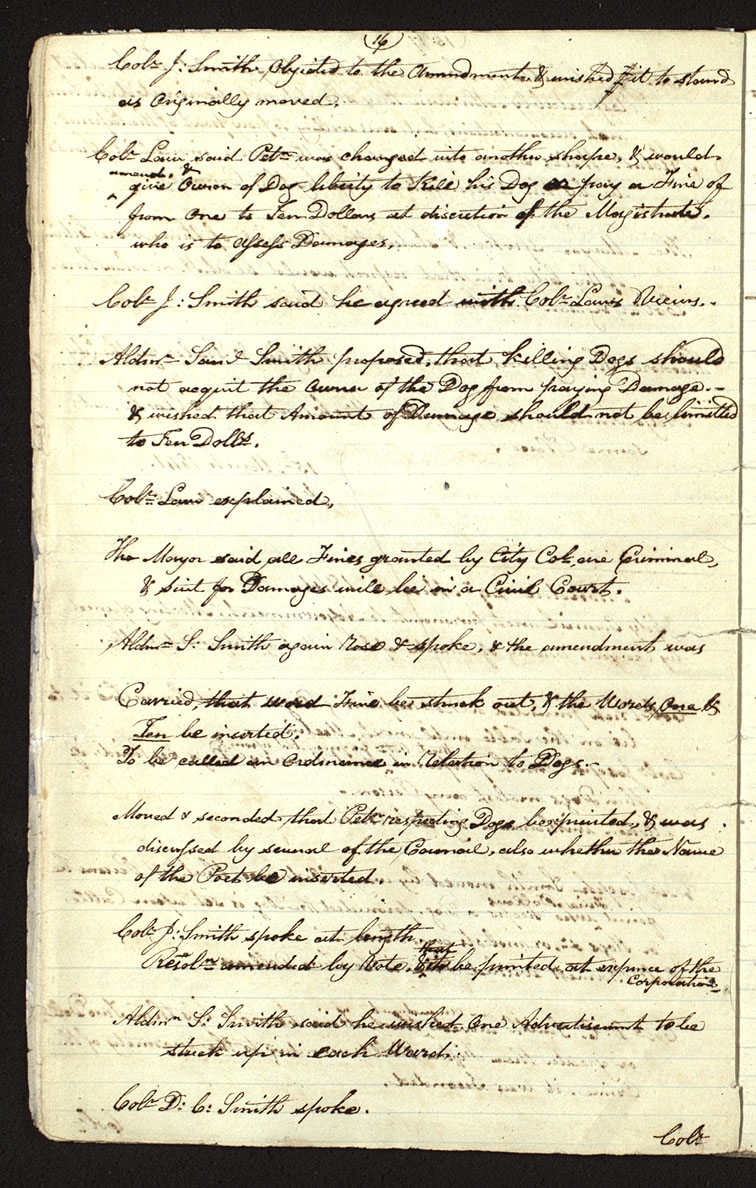 16
Colr. J: Smith Objected to the Amendment & wished it to stand
as Originally moved.
Colr. Law said Petn. was changed into another shape, & would
amend, &
give Owner of Dog liberty to Kill his Dog or pay a Fine of
from One to Ten Dollars at discretion of the Magistrate,
who is to assess Damages.
Colr. J: Smith said he agreed with Colr. Laws Views.
Aldmn. Saml. Smith proposed, that killing Dogs should
not acquit the owner of the Dog from paying Damage.-
& wished that Amount of Damage should not be limitted
to Ten Dolls.
Colr. Law explained,
The Mayor said all Fines granted by City Col. are Criminal,
& Suit for Damages will be in a Civil Court.
Aldmn. S: Smith again rose & spoke, & the amendment was
Carried, that word Fine be struck out, & the Words One &
Ten be inserted.
To be called an Ordinance in Relation to Dogs.-
Moved & seconded that Petn. respecting Dogs be printed, & was
discussed by several of the Council, also whether the Name
of the Poet be inserted
Colr. J: Smith spoke at length.
that
Resoln. amended by Vote, & to be printed at expence of the
Corporation
Aldmn. S: Smith said he wished One Advertisment to be
stuck up in each Ward.
Colr. D: C: Smith spoke.
Colr.